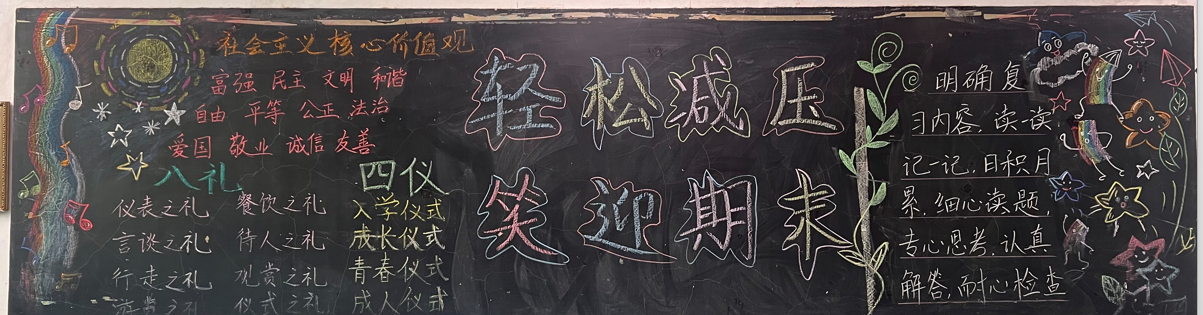 社会主义核心价值观
富强 民主 文明 和谐
自由 平等 公正 法治
爱国 敬业 诚信 友善
八礼
仪表之礼 餐饮之礼
言谈之礼 待人之礼
行走之礼 观赏之礼
游览之礼 仪式之礼
四仪
入学仪式
成长仪式
青春仪式
成人仪式
轻松减压
笑迎期末
明确复
习内容,读一读
记一记,日积月
累,细心读题,
专心思考,认真
解答,耐心检查